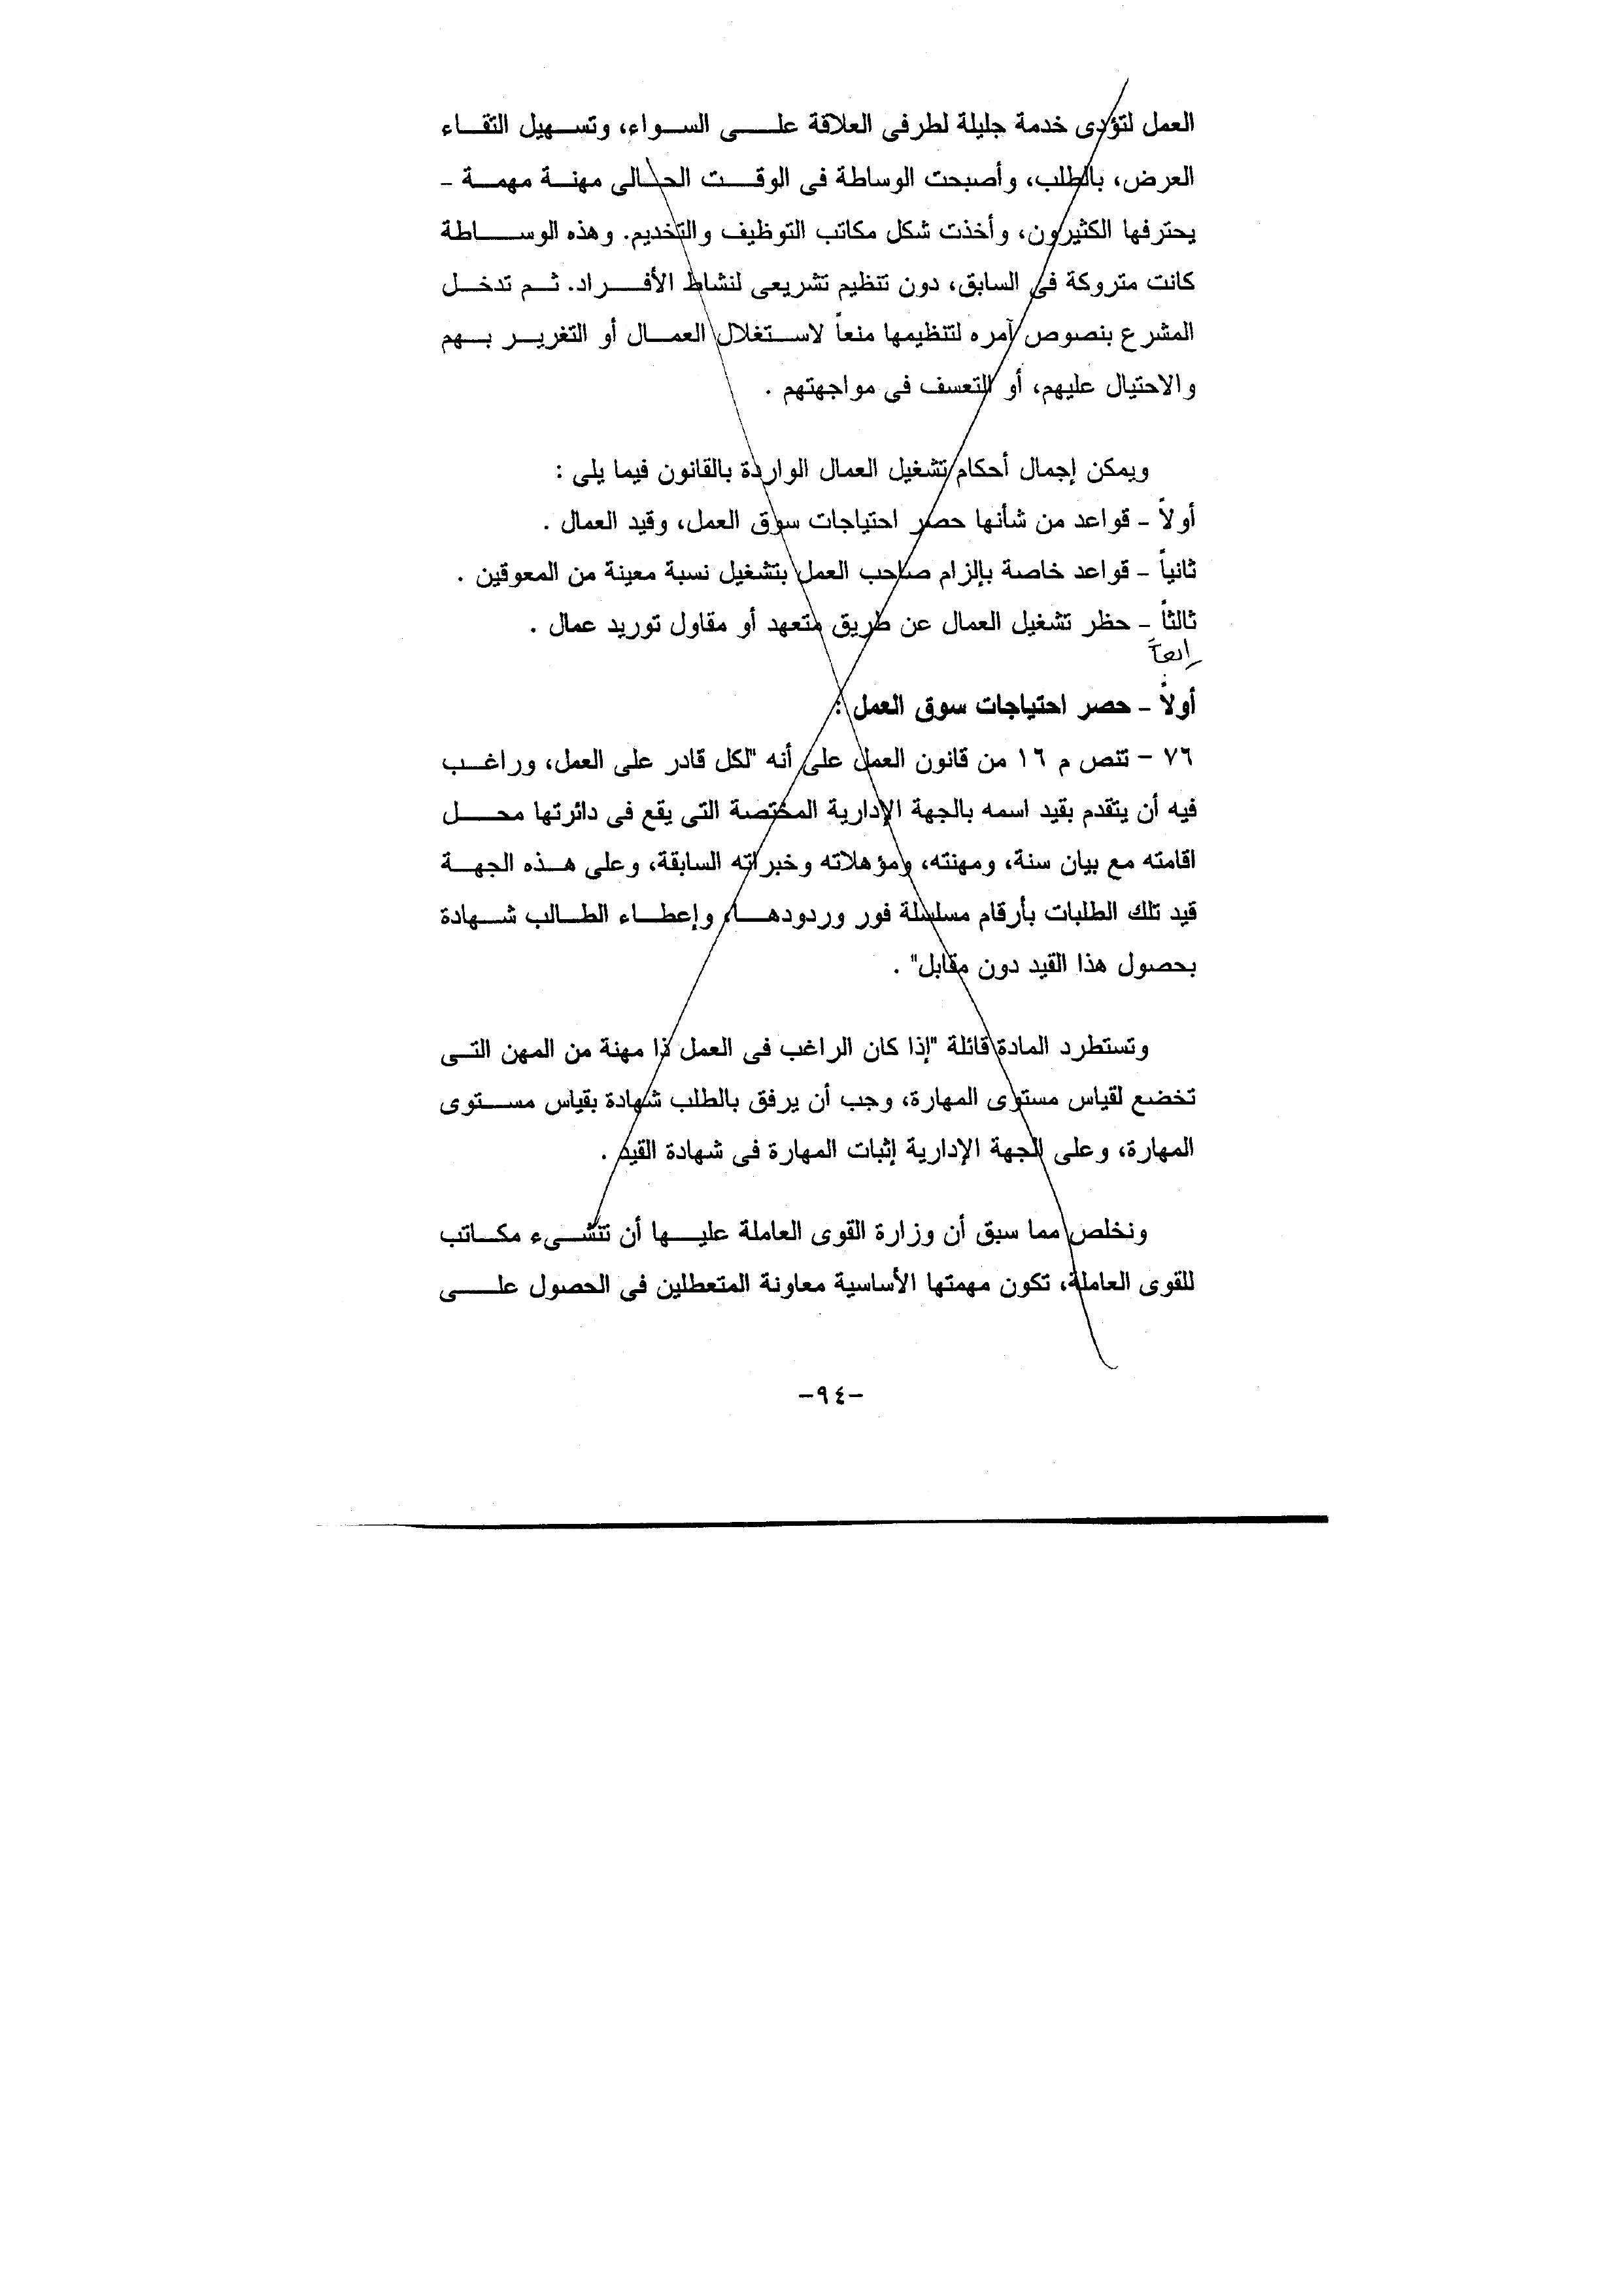 العمل لتؤدى خدمة جليلة لطرفى العلاقة على السواء، وتسهيل التقاء
العرض، بالطلب، وأصبحت الوساطة فى الوقت الحالى مهنة مهمة -
يحترفها الكثيرون، وأخذت شكل مكاتب التوظيف والتخديم. وهذه الوساطة
كانت متروكة فى السابق، دون تنظيم تشريعى لنشاط الأفراد. ثم تدخل
المشرع بنصوص آمره لتنظيمها منعاً لاستغلال العمال أو التغرير بهم
والاحتيال عليهم، أو التعسف فى مواجهتهم .
ويمكن إجمال أحكام تشغيل العمال الواردة بالقانون فيما يلى :
أولاً - قواعد من شأنها حصر احتياجات سوق العمل، وقيد العمال .
ثانياً - قواعد خاصة بإلزام صاحب العمل بتشغيل نسبة معينة من المعوقين .
ثالثاً - حظر تشغيل العمال عن طريق متعهد أو مقاول توريد عمال .
رابعاً
أولاً - حصر احتياجات سوق العمل :
٧٦ - تنص م ١٦ من قانون العمل على أنه "لكل قادر على العمل، وراغب
فيه أن يتقدم بقيد اسمه بالجهة الإدارية المختصة التى يقع فى دائرتها محل
اقامته مع بيان سنة، ومهنته، ومؤهلاته وخبراته السابقة، وعلى هذه الجهة
قيد تلك الطلبات بأرقام مسلسلة فور وردودها، وإعطاء الطالب شهادة
بحصول هذا القيد دون مقابل" .
وتستطرد المادة قائلة "إذا كان الراغب فى العمل ذا مهنة من المهن التى
تخضع لقياس مستوى المهارة، وجب أن يرفق بالطلب شهادة بقياس مستوى
المهارة، وعلى الجهة الإدارية إثبات المهارة فى شهادة القيد .
ونخلص مما سبق أن وزارة القوى العاملة عليها أن تنشىء مكاتب
للقوى العاملة، تكون مهمتها الأساسية معاونة المتعطلين فى الحصول على
-٩٤-